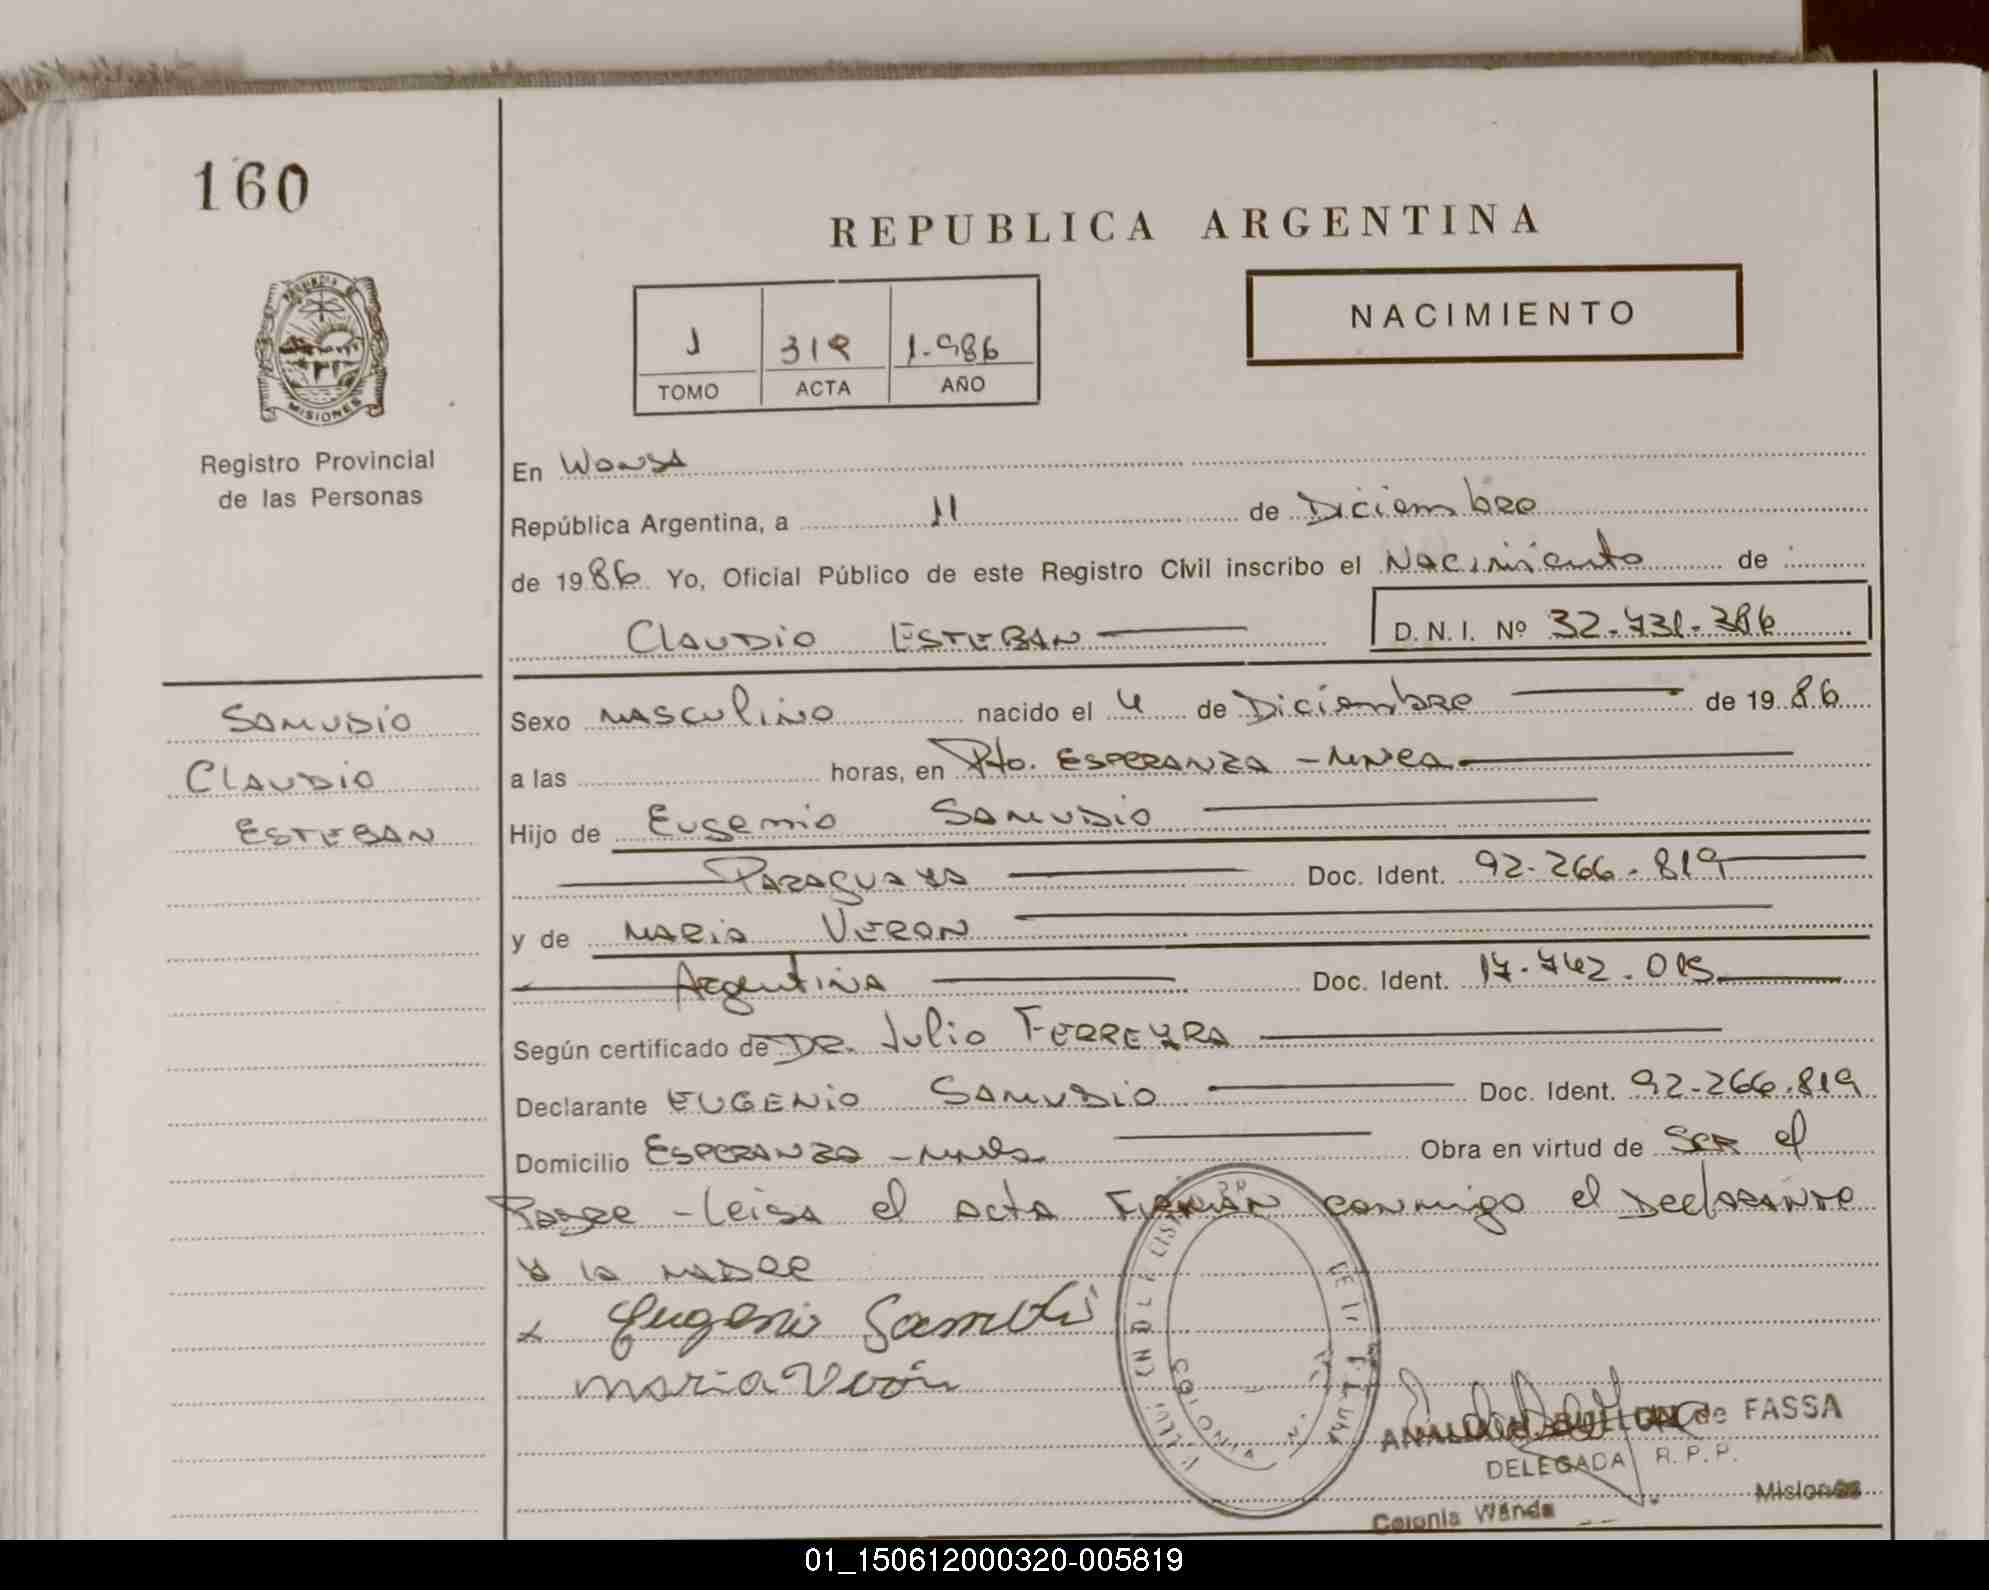 160
REPUBLICA ARGENTINA
NACIMIENTO
1 319 1.986
TOMO ACTA AÑO
PROVINCIA DE
MISIONES
Registro Provincial
de las Personas
En Wanda
República Argentina, a 11 de Diciembre
de 1986 Yo, Oficial Público de este Registro Civil inscribo el Nacimiento de
CLAUDIO ESTEBAN D. N. I. Nº 32.731.386
SAMUDIO
CLAUDIO
ESTEBAN
Sexo MASCULINO nacido el 4 de Diciembre de 1986
a las horas, en Pto. ESPERANZA - Mnes
Hijo de Eugenio SAMUDIO
PARAGUAYA Doc. Ident. 92.266.819
y de MARIA VERON
Argentina Doc. Ident. 17.742.015
Según certificado de DR. Julio FERREYRA
Declarante EUGENIO SAMUDIO Doc. Ident. 92.266.819
Domicilio ESPERANZA - Mnes Obra en virtud de SER el
Padre - Leida el acta FIRMAN conmigo el Declarante
y la MADRE
x Eugenio Samudio
Maria Verón
de FASSA
DELEGADA R. P. P.
Colonia Wanda Misiones
01_150612000320-005819